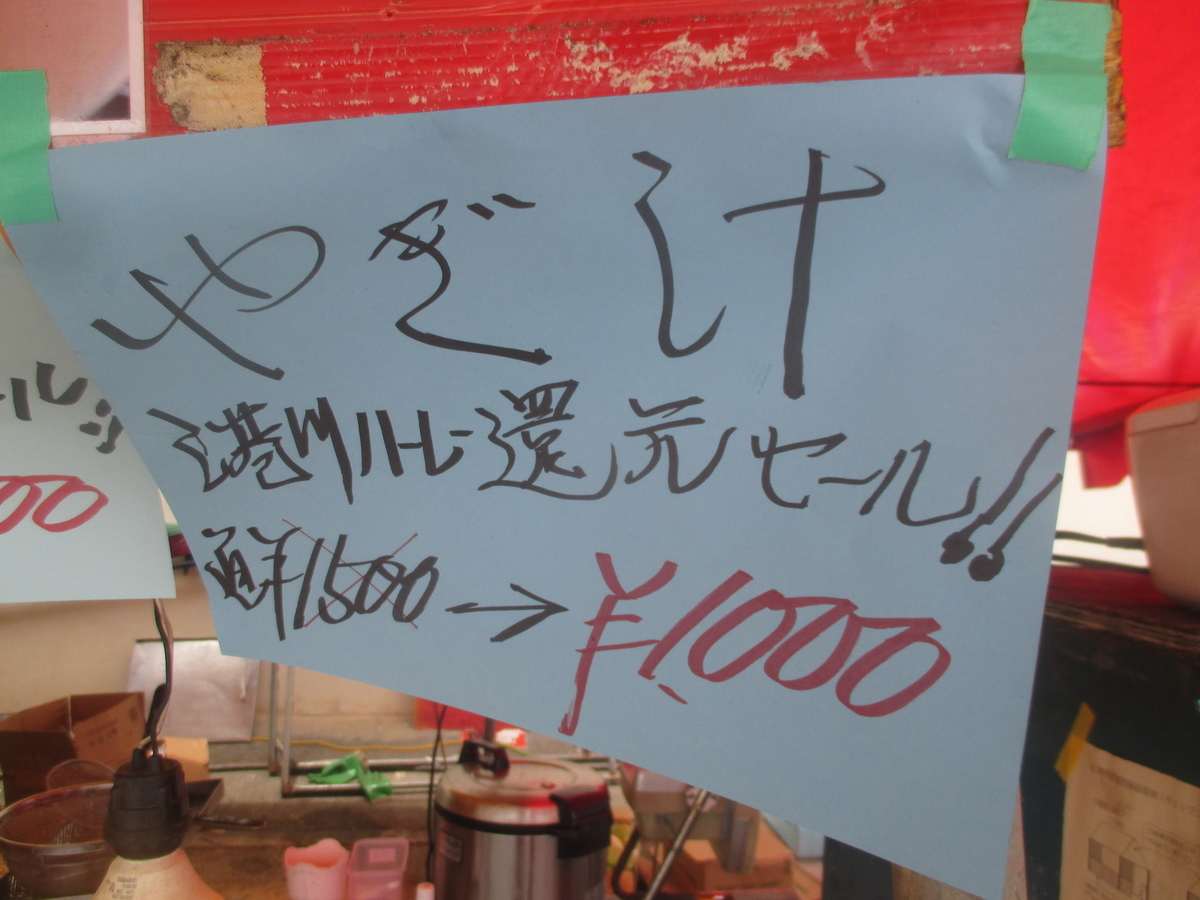 やぎ汁
港川ハーレー還元セール!!
通常1500→¥1000
ール!!
00